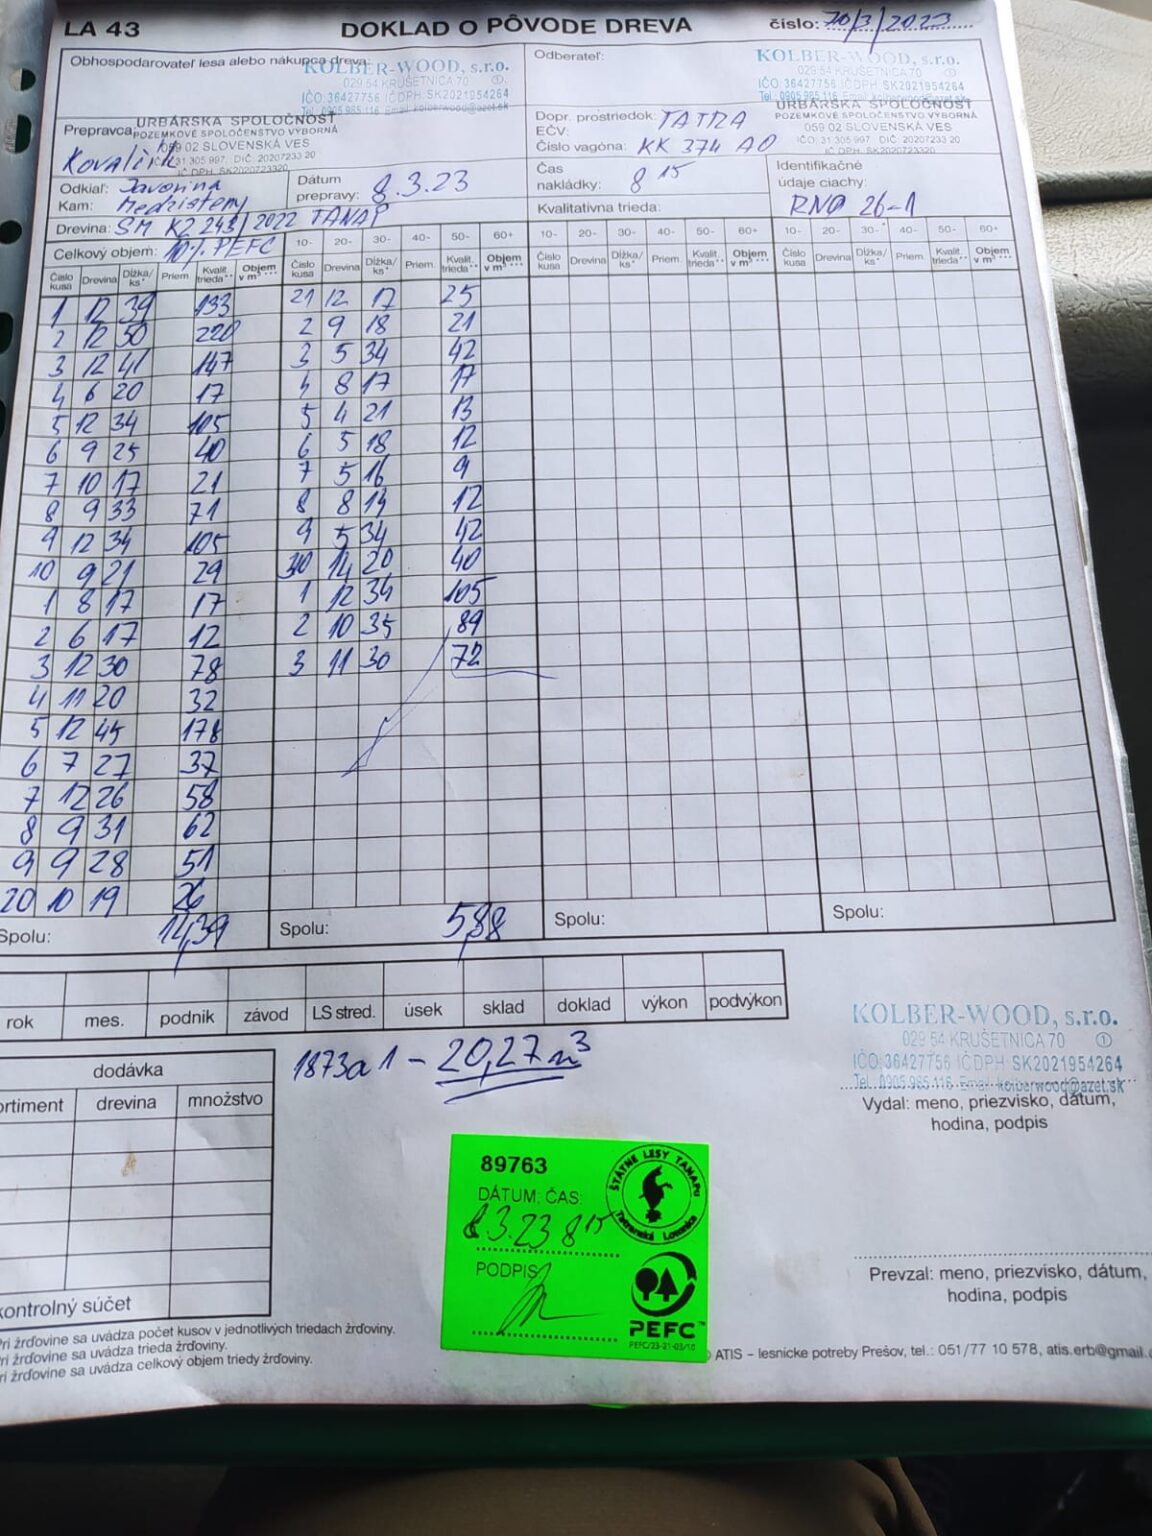 LA 43 DOKLAD O PÔVODE DREVA číslo: 70/3/2023
Obhospodarovateľ lesa alebo nákupca dreva:
KOLBER-WOOD, s.r.o.
029 54 KRUŠETNICA 70 ①
IČO: 36427756 IČDPH: SK2021954264
Tel.: 0905 985 116 Email: kolberwood@azet.sk
Odberateľ:
KOLBER-WOOD, s.r.o.
029 54 KRUŠETNICA 70 ①
IČO: 36427756 IČDPH: SK2021954264
Tel.: 0905 985 116 Email: kolberwood@azet.sk
URBÁRSKA SPOLOČNOSŤ
POZEMKOVÉ SPOLOČENSTVO VÝBORNÁ
059 02 SLOVENSKÁ VES
IČO: 31 305 997, DIČ: 20207233 20
IČ DPH: SK2020723320
Prepravca:
Kovalčík
Dopr. prostriedok: TATRA
EČV:
Číslo vagóna: KK 374 AO
URBÁRSKA SPOLOČNOSŤ
POZEMKOVÉ SPOLOČENSTVO VÝBORNÁ
059 02 SLOVENSKÁ VES
IČO: 31 305 997, DIČ: 20207233 20
IČ DPH: SK2020723320
Odkiaľ: Javorina
Kam: Medzisteny
Dátum prepravy: 8.3.23
Čas nakládky: 8 15
Identifikačné údaje ciachy:
RNO 26-1
Kvalitatívna trieda:
Drevina: SM K2 243/2022 TANAP
Celkový objem: 10% PEFC
10- 20- 30- 40- 50- 60+ 10- 20- 30- 40- 50- 60+ 10- 20- 30- 40- 50- 60+
Číslo kusa Drevina Dĺžka/ks* Priem. Kvalit. trieda** Objem v m³***
Číslo kusa Drevina Dĺžka/ks* Priem. Kvalit. trieda** Objem v m³***
Číslo kusa Drevina Dĺžka/ks* Priem. Kvalit. trieda** Objem v m³***
Číslo kusa Drevina Dĺžka/ks* Priem. Kvalit. trieda** Objem v m³***
1 12 39 133 21 12 17 25
2 12 50 220 2 9 18 21
3 12 41 147 3 5 34 42
4 6 20 17 4 8 17 17
5 12 34 105 5 4 21 13
6 9 25 40 6 5 18 12
7 10 17 21 7 5 16 9
8 9 33 71 8 8 14 12
9 12 34 105 9 5 34 42
10 9 21 29 30 14 20 40
1 8 17 17 1 12 34 105
2 6 17 12 2 10 35 89
3 12 30 78 3 11 30 72
4 11 20 32
5 12 45 178
6 7 27 37
7 12 26 58
8 9 31 62
9 9 28 51
20 10 19 26
Spolu: 14,39 Spolu: 5,88 Spolu: Spolu:
rok mes. podnik závod LS stred. úsek sklad doklad výkon podvýkon
1873a1 – 20,27 m³
dodávka
ortiment drevina množstvo
kontrolný súčet
KOLBER-WOOD, s.r.o.
029 54 KRUŠETNICA 70 ①
IČO: 36427756 IČDPH: SK2021954264
Tel.: 0905 985 116 Email: kolberwood@azet.sk
Vydal: meno, priezvisko, dátum,
hodina, podpis
89763
DÁTUM: ČAS:
8.3.23 8 15
PODPIS:
ŠTÁTNE LESY TANAPU
Tatranská Lomnica
PEFC™
PEFC/23-21-03/10
Prevzal: meno, priezvisko, dátum,
hodina, podpis
ri žrďovine sa uvádza počet kusov v jednotlivých triedach žrďoviny.
ri žrďovine sa uvádza trieda žrďoviny.
ri žrďovine sa uvádza celkový objem triedy žrďoviny.
© ATIS – lesnícke potreby Prešov, tel.: 051/77 10 578, atis.erb@gmail.